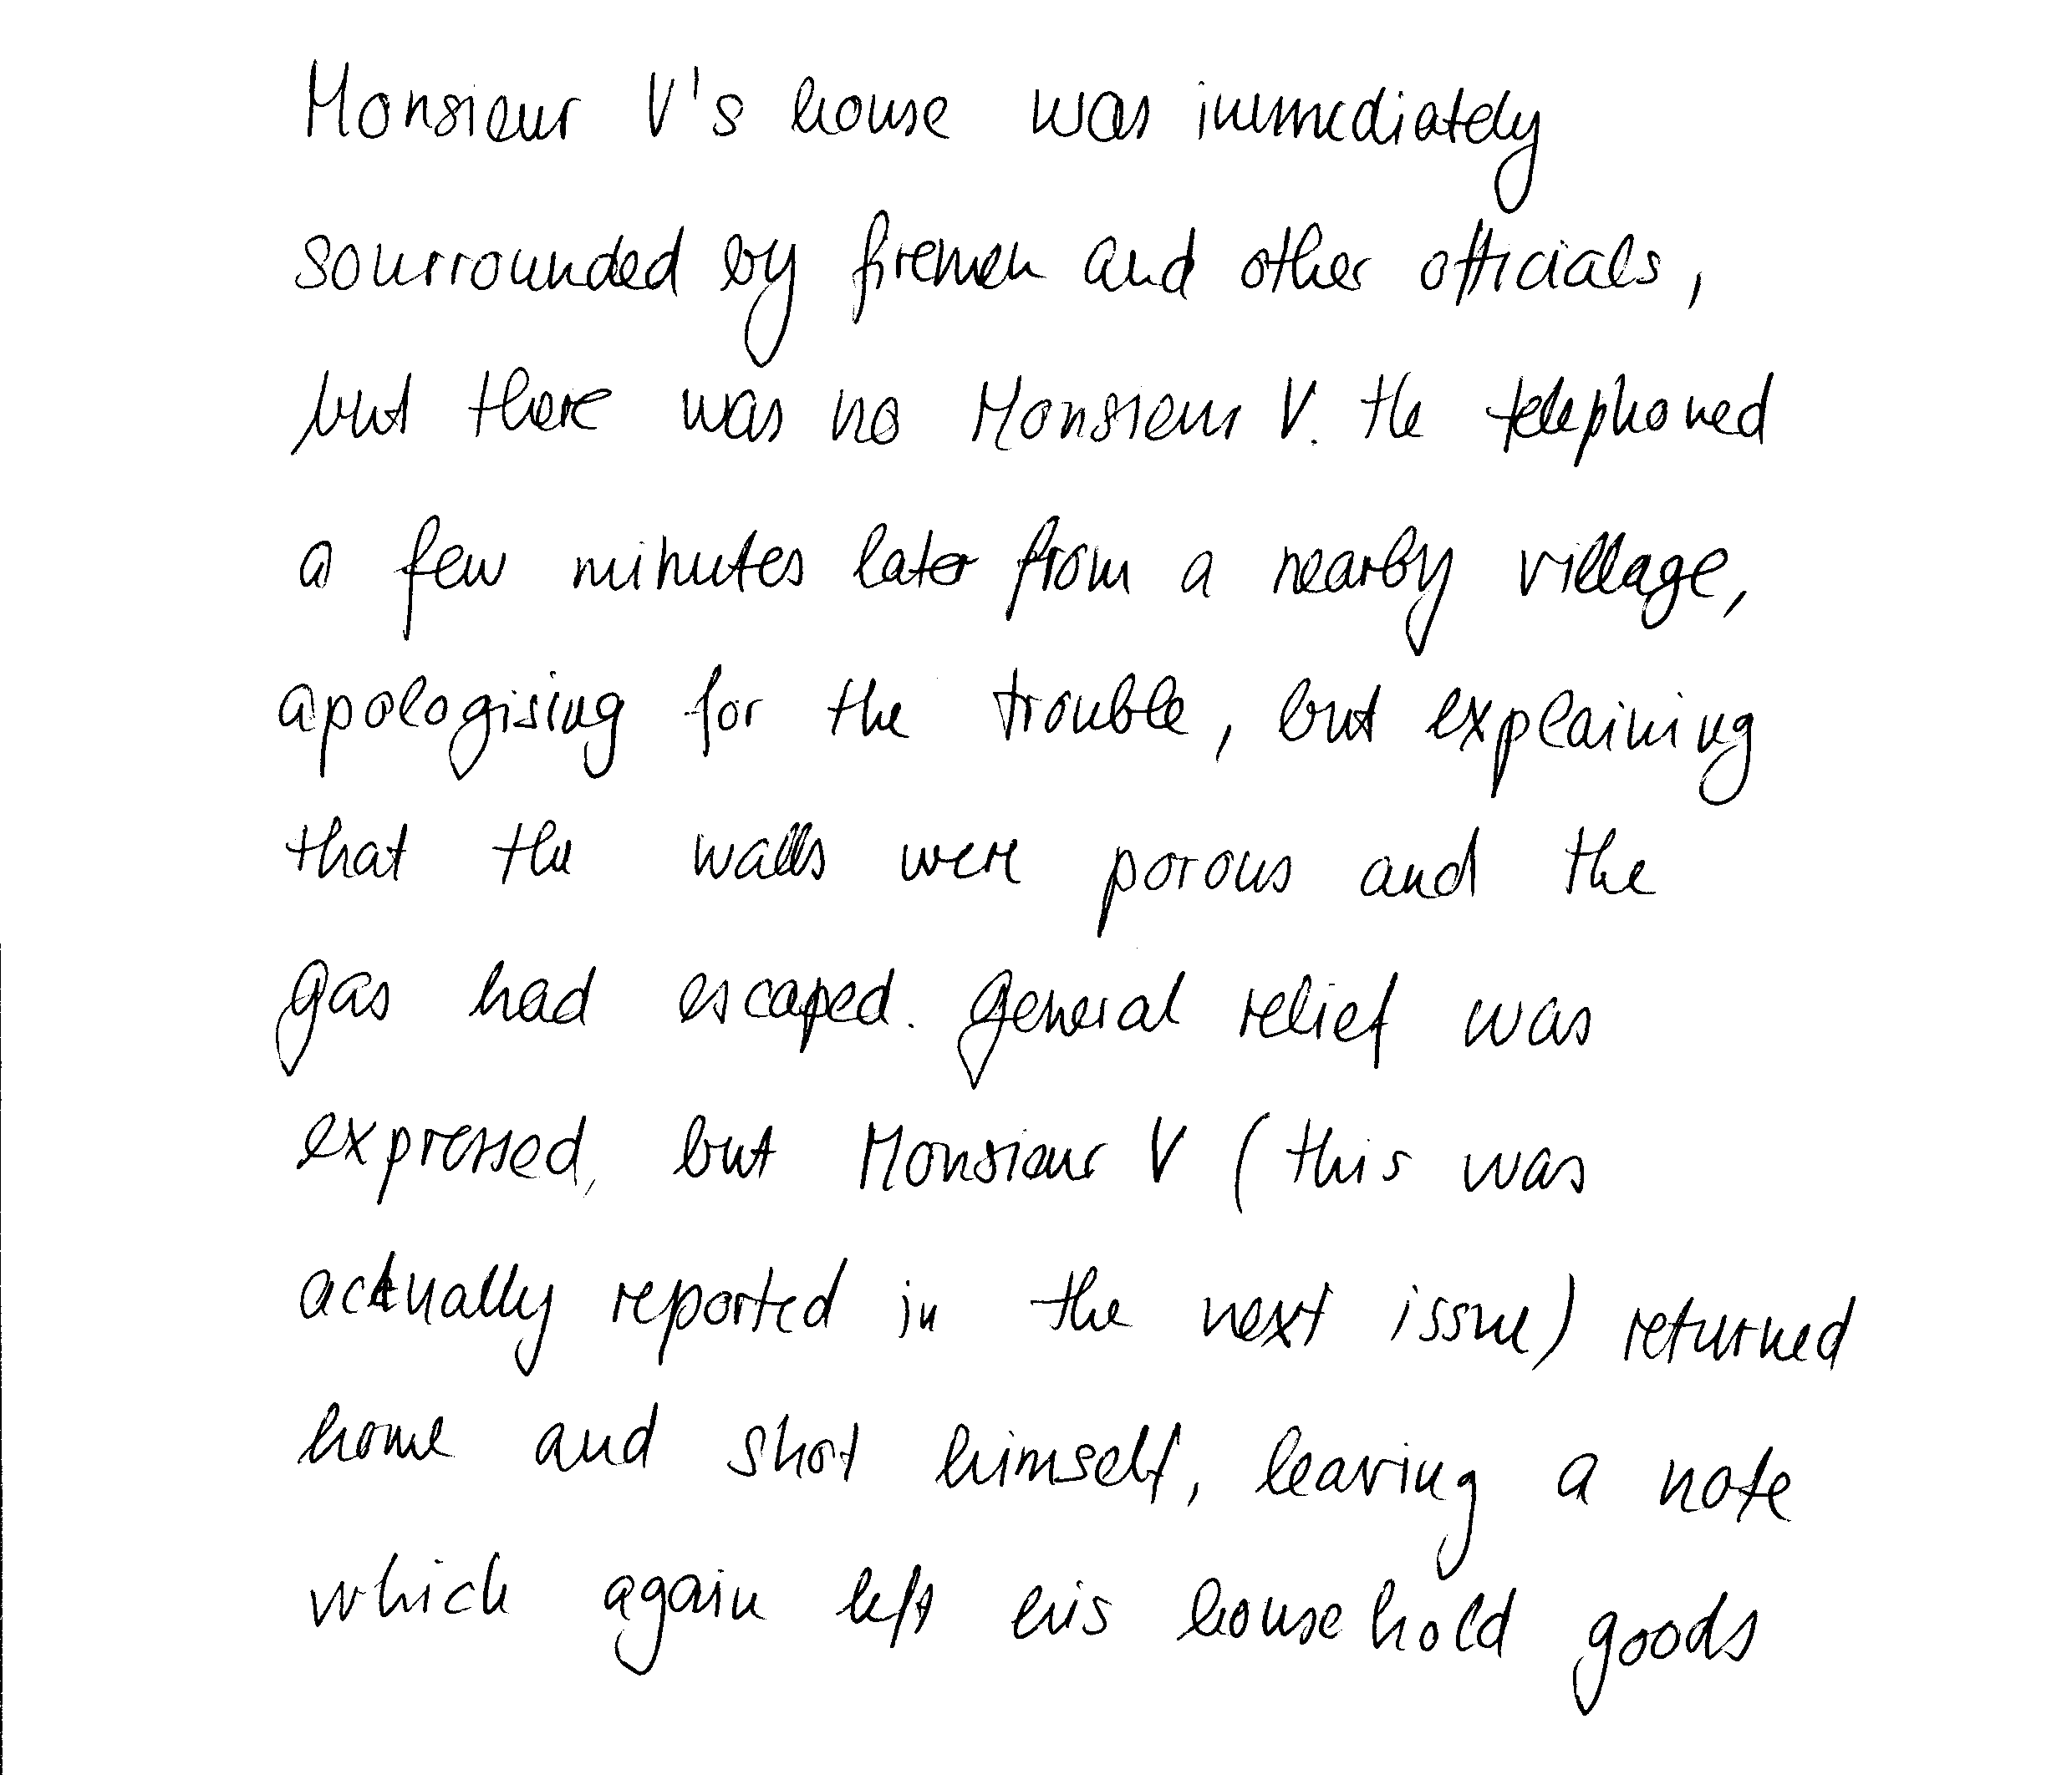 Monsieur V's house was immediately
sourrounded by firemen and other officials,
but there was no Monsieur V. He telephoned
a few minutes later from a nearby village,
apologising for the trouble, but explaining
that the walls were porous and the
gas had escaped. General relief was
expressed, but Monsieur V (this was
actually reported in the next issue) returned
home and shot himself, leaving a note
which again left his household goods